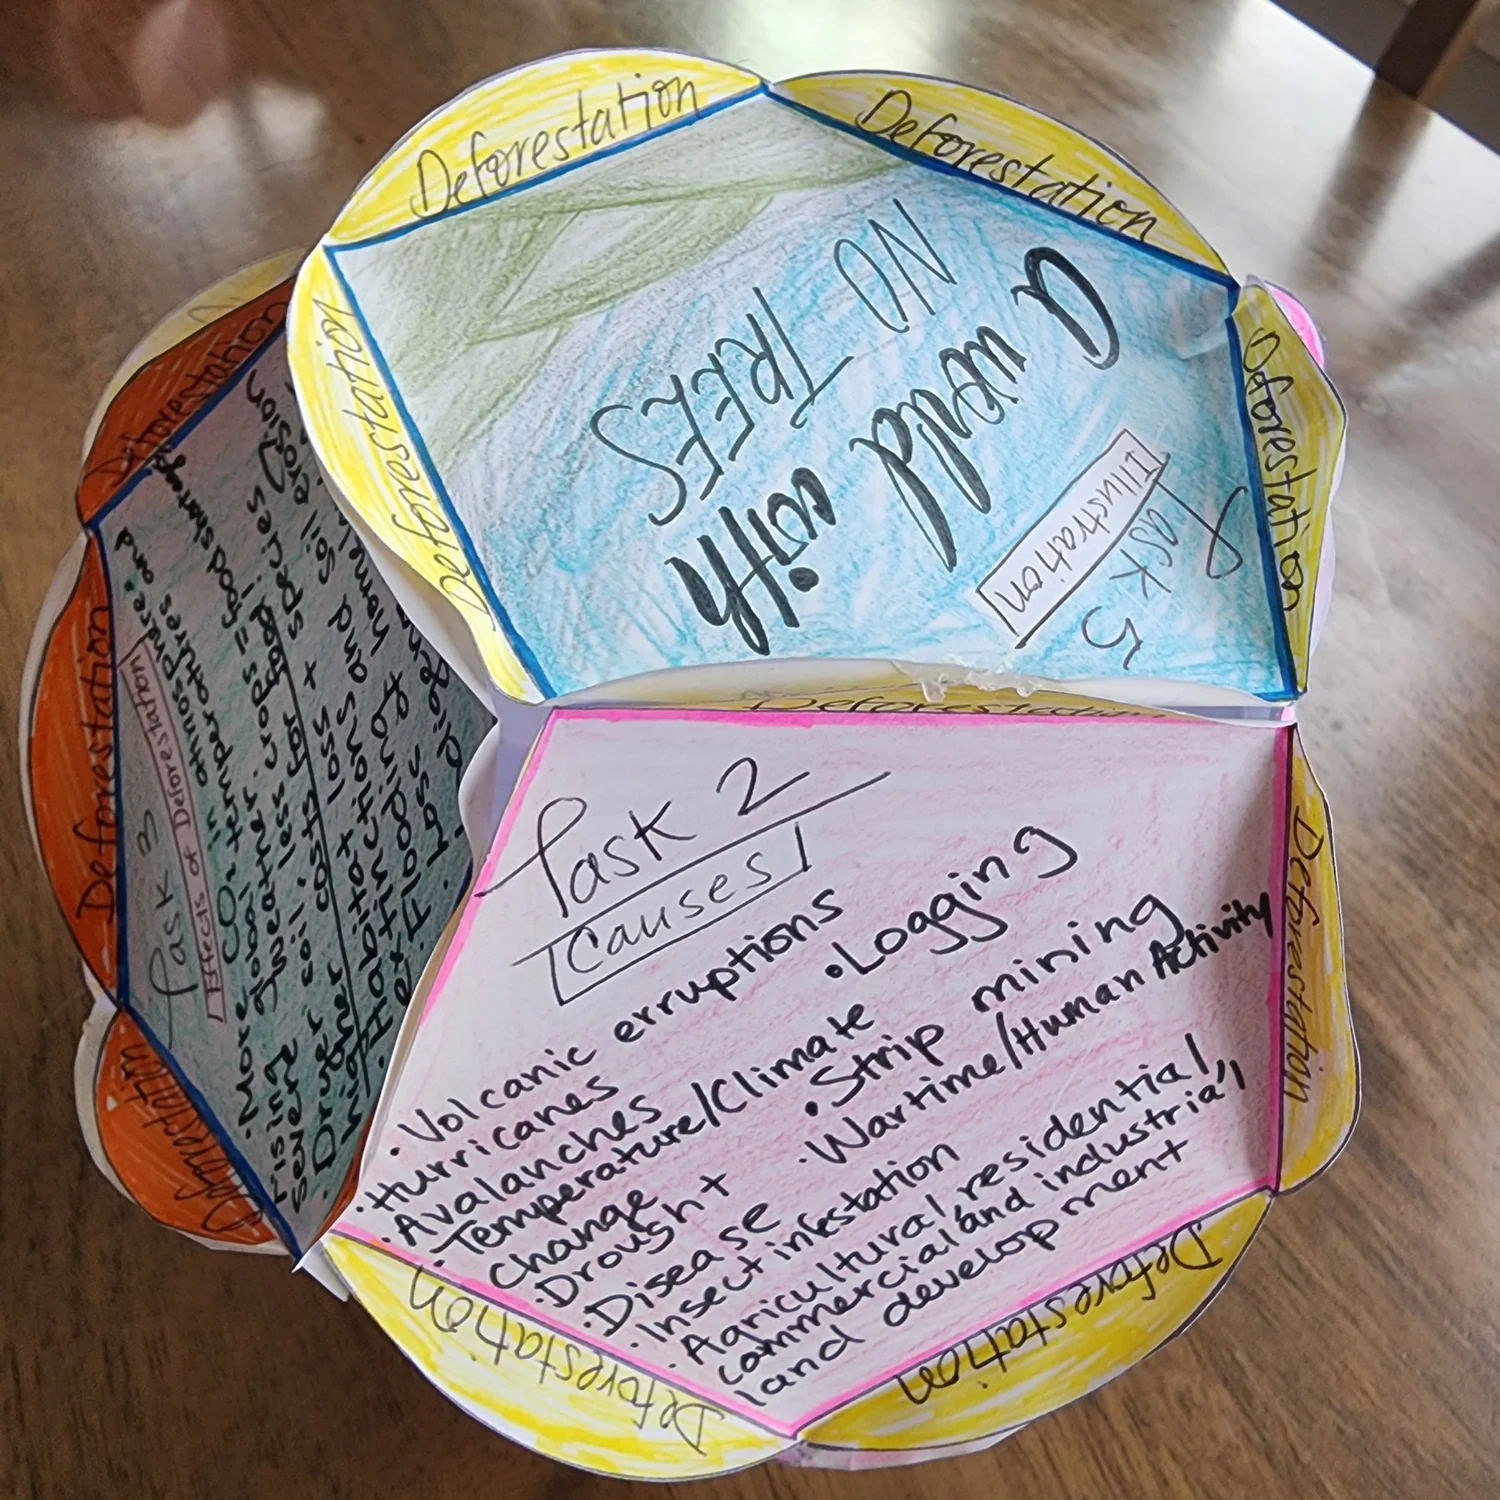 Deforestation
Deforestation
Deforestation
Deforestation
a world with
NO TREES
Task 5
Illustration
Deforestation
Task 2
Causes
• Volcanic erruptions
• Hurricanes
• Avalanches
• Temperature/Climate
change
• Drought
• Disease
• Insect infestation
• Agricultural, residential,
commercial and industrial
land development
• Logging
• Strip mining
• Wartime/Human Activity
Deforestation
Deforestation
Deforestation
Task 3
Effects of Deforestation
• More CO2 in atmosphere and
rising global temperatures
severe weather
• Dryer soil, less crops = food shortage
higher costs for
• Habitat loss + species
extinction and soil erosion
• Flooding
• Loss
Deforestation
Deforestation
Deforestation